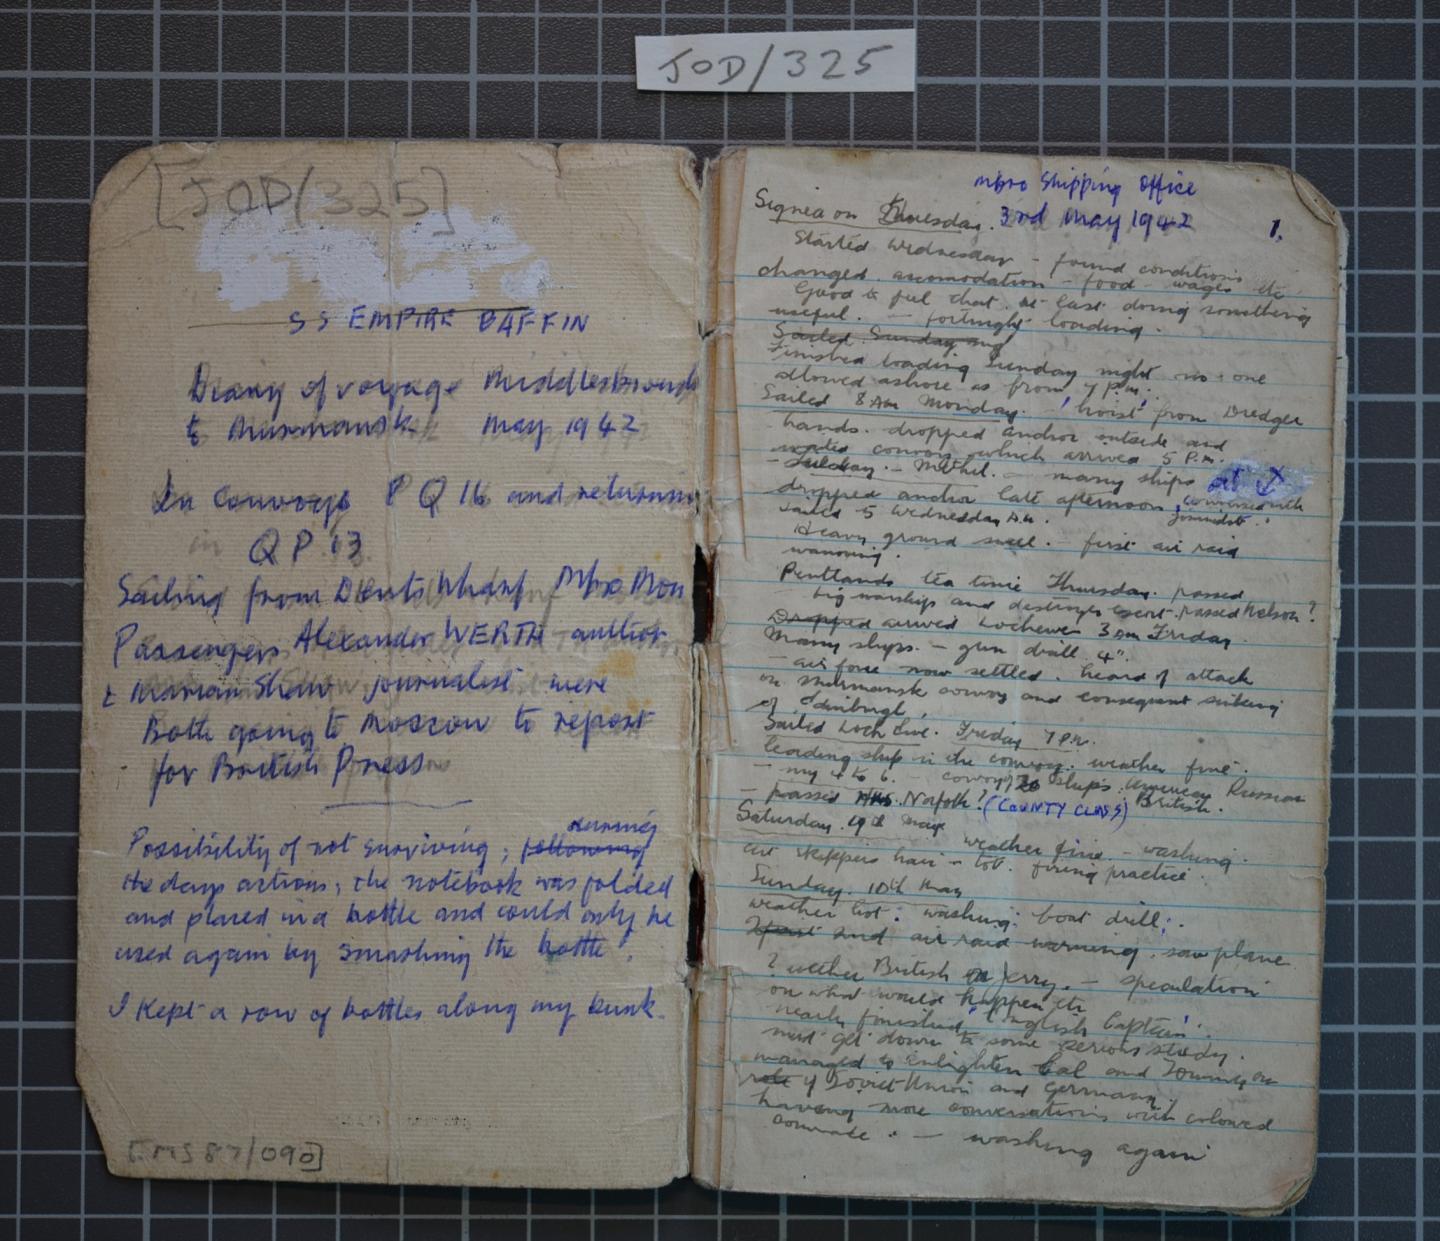 JOD/325
[JOD/325]
SS EMPIRE BAFFIN
Diary of voyage Middlesbrough
to Murmansk May 1942
In convoy PQ 16 and returning
in QP 13
Sailing from Dents Wharf Mbro Mon
Passengers Alexander WERTH author
& Marian Shaw journalist were
Both going to Moscow to report
for British Press
Possibility of not surviving, following during
the days actions, the notebook was folded
and placed in a bottle and could only be
used again by smashing the bottle!
I kept a row of bottles along my bunk.
[MS87/090]
Mbro Shipping Office
Signed on Thursday. 3rd May 1942 1.
Started Wednesday - found conditions etc
changed. accomodation - food - wages
Good to feel that at last doing something
useful. - fortnight loading.
Sailed Sunday and
Finished loading Sunday night no one
allowed ashore as from 7 P.m.
Sailed 8 Am Monday. - 'hoist' from Dredger
hands. dropped anchor outside and
waited convoy which arrived 5 P.m.
- Tuesday. - Methil. - many ships at
dropped anchor late afternoon, conversed with
sailed 5 Wednesday A.m.
Heavy ground swell. - first air raid
warning.
Pentlands tea time Thursday. passed
big warships and destroyer escort. passed Nelson?
Dropped arrived Lochewe 3 am Friday
Many ships. - gun drill 4".
- air force now settled. heard of attack
on Murmansk convoy and consequent sinking
of Edinburgh.
Sailed Loch Ewe. Friday 7 P.m.
leading ship in the convoy. weather fine.
- my 4 to 6. - convoy 26 ships. American Russian
British.
- passed HMS. Norfolk? (COUNTY CLASS)
Saturday. 9th May
weather fine - washing.
cut skippers hair - tot. firing practice.
Sunday. 10th May
weather hot: washing: boat drill;
First 2nd air raid warning. saw plane
? wether British or Jerry. - speculation
on what would happen etc
nearly finished 'English Captain'.
must get down to some serious study.
managed to enlighten Cal and Tommy on
role of Soviet Union and Germany.
having more conversations with coloured
comrade. - washing again